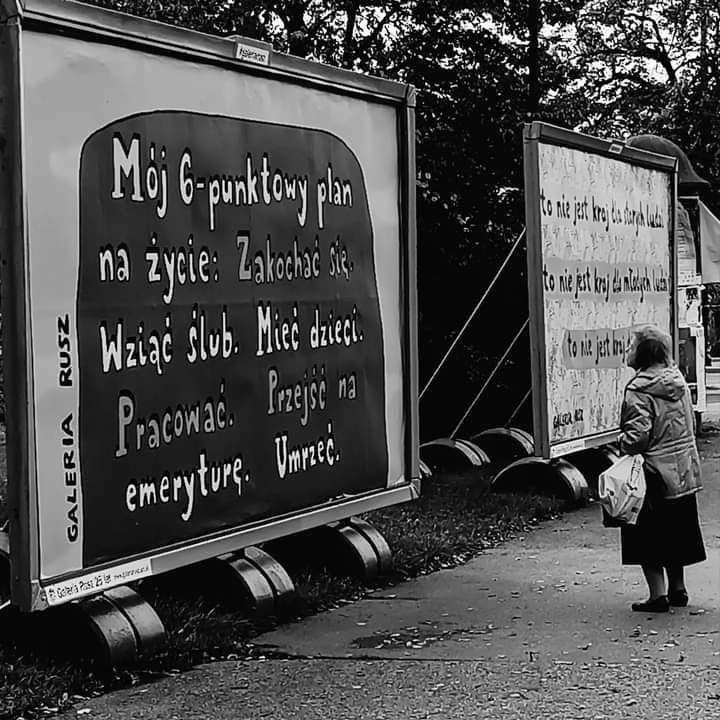 Mój 6-punktowy plan
na życie: Zakochać się.
Wziąć ślub. Mieć dzieci.
Pracować. Przejść na
emeryturę. Umrzeć.
GALERIA RUSZ
© Galeria Rusz 25 lat
to nie jest kraj dla starych ludzi
to nie jest kraj dla młodych ludzi
to nie jest kraj
GALERIA RUSZ